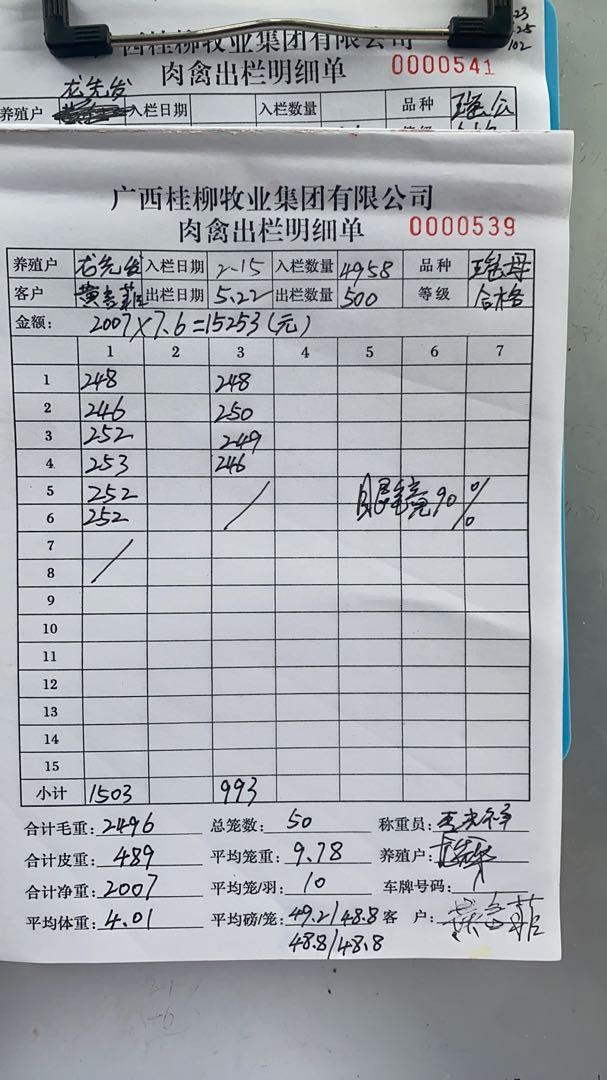 广西桂柳牧业集团有限公司
肉禽出栏明细单 0000541
养殖户 龙先发 入栏日期 入栏数量 品种 瑶公
23
25
102
广西桂柳牧业集团有限公司
肉禽出栏明细单 0000539
养殖户 龙先发 入栏日期 2-15 入栏数量 4958 品种 瑶母
客户 出栏日期 5.22 出栏数量 500 等级 合格
金额: 2007×7.6=15253(元)
1 2 3 4 5 6 7
1 248 248
2 246 250
3 252 249
4 253 246
5 252 / 眼毛亮90%
6 252
7 /
8
9
10
11
12
13
14
15
小计 1503 993
合计毛重: 2496 总笼数: 50 称重员:
合计皮重: 489 平均笼重: 9.78 养殖户:
合计净重: 2007 平均笼/羽: 10 车牌号码: /
平均体重: 4.01 平均磅/笼: 49.2/48.8 客 户:
48.8/48.8